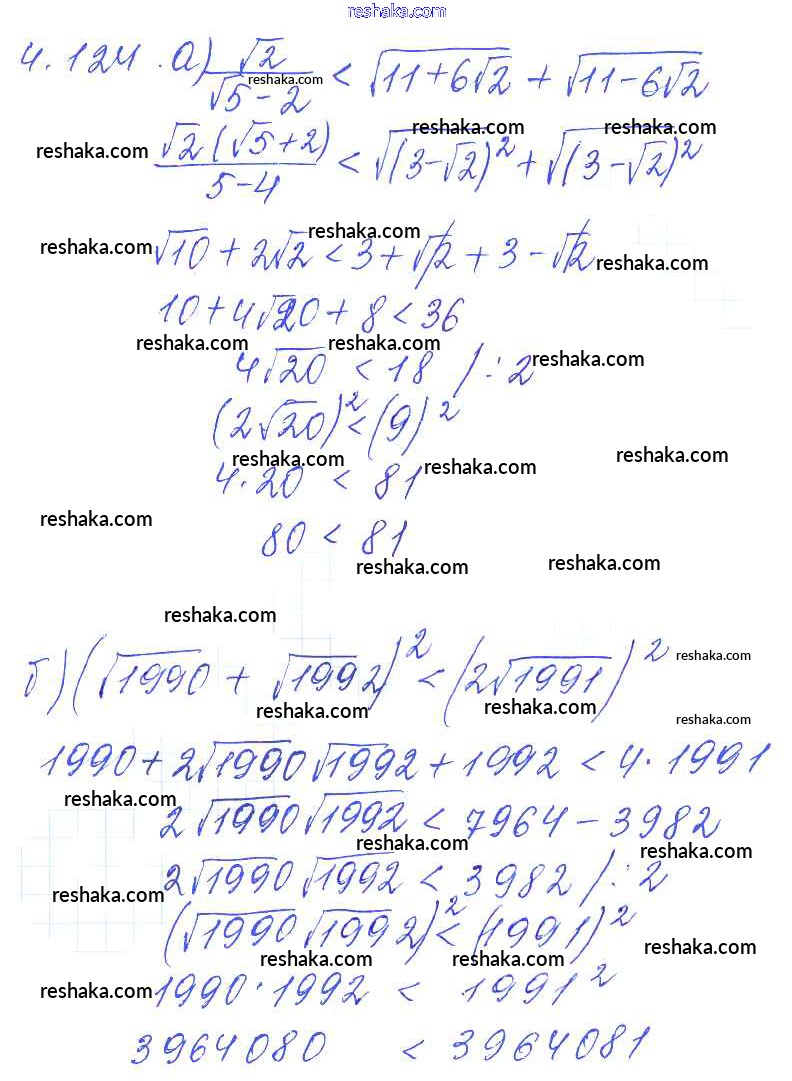 reshaka.com
4.124. а) √2/(√5-2) < √(11+6√2) + √(11-6√2)
reshaka.com
reshaka.com reshaka.com
reshaka.com √2(√5+2)/(5-4) < √(3-√2)² + √(3-√2)²
reshaka.com reshaka.com
√10 + 2√2 < 3 + √2 + 3 - √2 reshaka.com
10 + 4√20 + 8 < 36
reshaka.com reshaka.com
4√20 < 18 /:2 reshaka.com
(2√20)² < (9)²
reshaka.com reshaka.com reshaka.com
4·20 < 81
reshaka.com
80 < 81
reshaka.com reshaka.com
reshaka.com
б) (√1990 + √1992)² < (2√1991)² reshaka.com
reshaka.com reshaka.com reshaka.com
1990 + 2√1990 √1992 + 1992 < 4·1991
reshaka.com
2√1990 √1992 < 7964 - 3982
reshaka.com reshaka.com
2√1990 √1992 < 3982 /:2
reshaka.com
(√1990 √1992)² < (1991)²
reshaka.com reshaka.com reshaka.com
reshaka.com 1990·1992 < 1991²
3964080 < 3964081